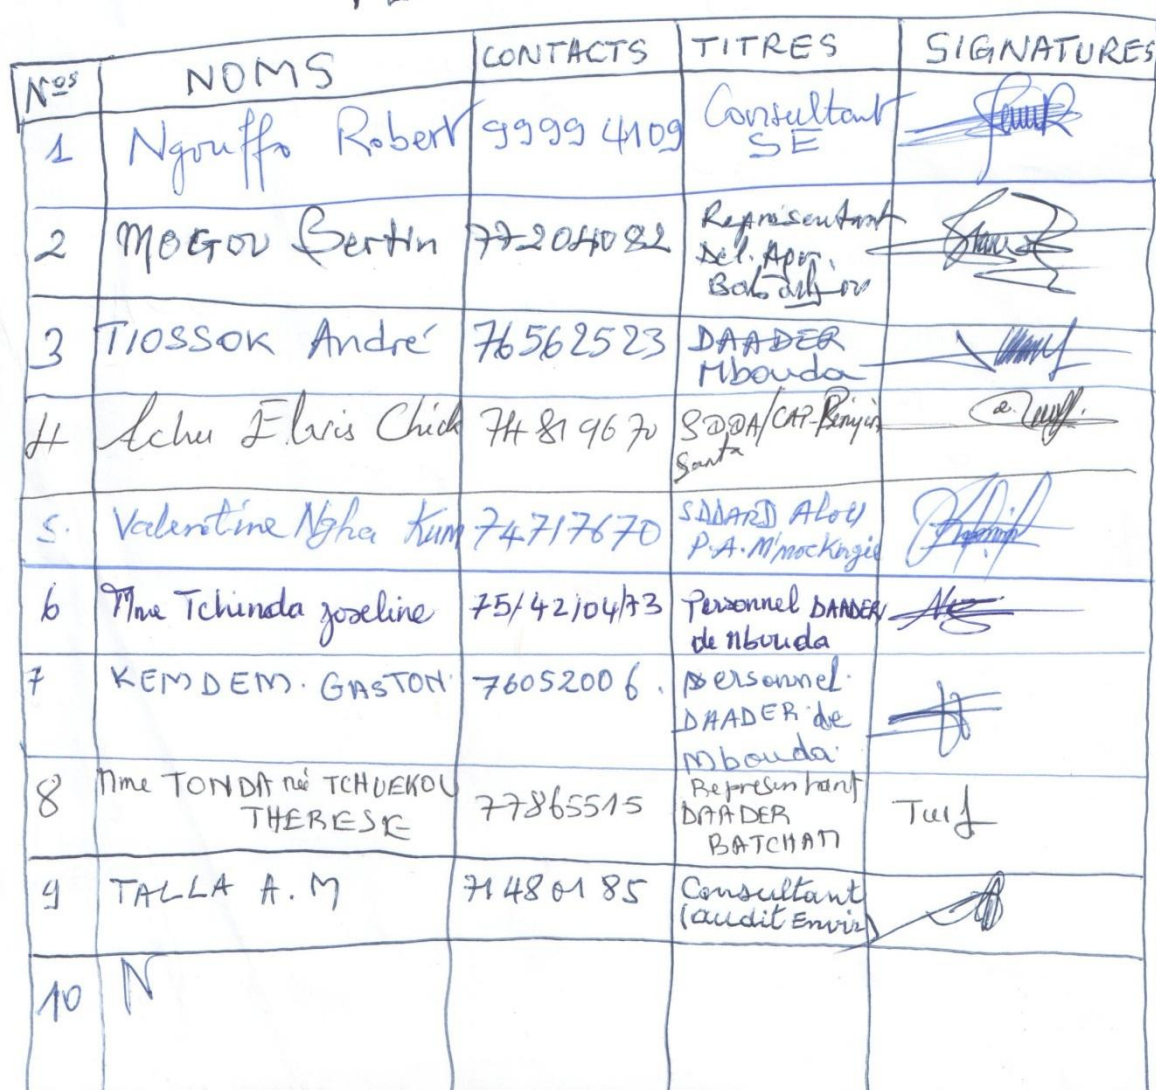 Nos NOMS CONTACTS TITRES SIGNATURES
1 Ngouffo Robert 99994109 Consultant
SE
2 MOGOU Bertin 77204082 Représentant
Del.
3 TIOSSOK André 76562523 DAADER
Mbouda
4 Achu Elvis Chick 74819670 SDDA/CAP-
Santa
5. Valentine Ngha Kum 74717670 SDDARD Alou
P.A. M'mockngie
6 Mme Tchinda Joseline 75/42/04/73 Personnel DAADER
de Mbouda
7 KEMDEM. GASTON. 76052006. personnel.
DAADER de
Mbouda.
8 Mme TONDA né TCHUEKOU
THERESE 77865515 Représentant
DAADER
BATCHAM
9 TALLA A. M 71480185 Consultant
(audit Envir)
10 N